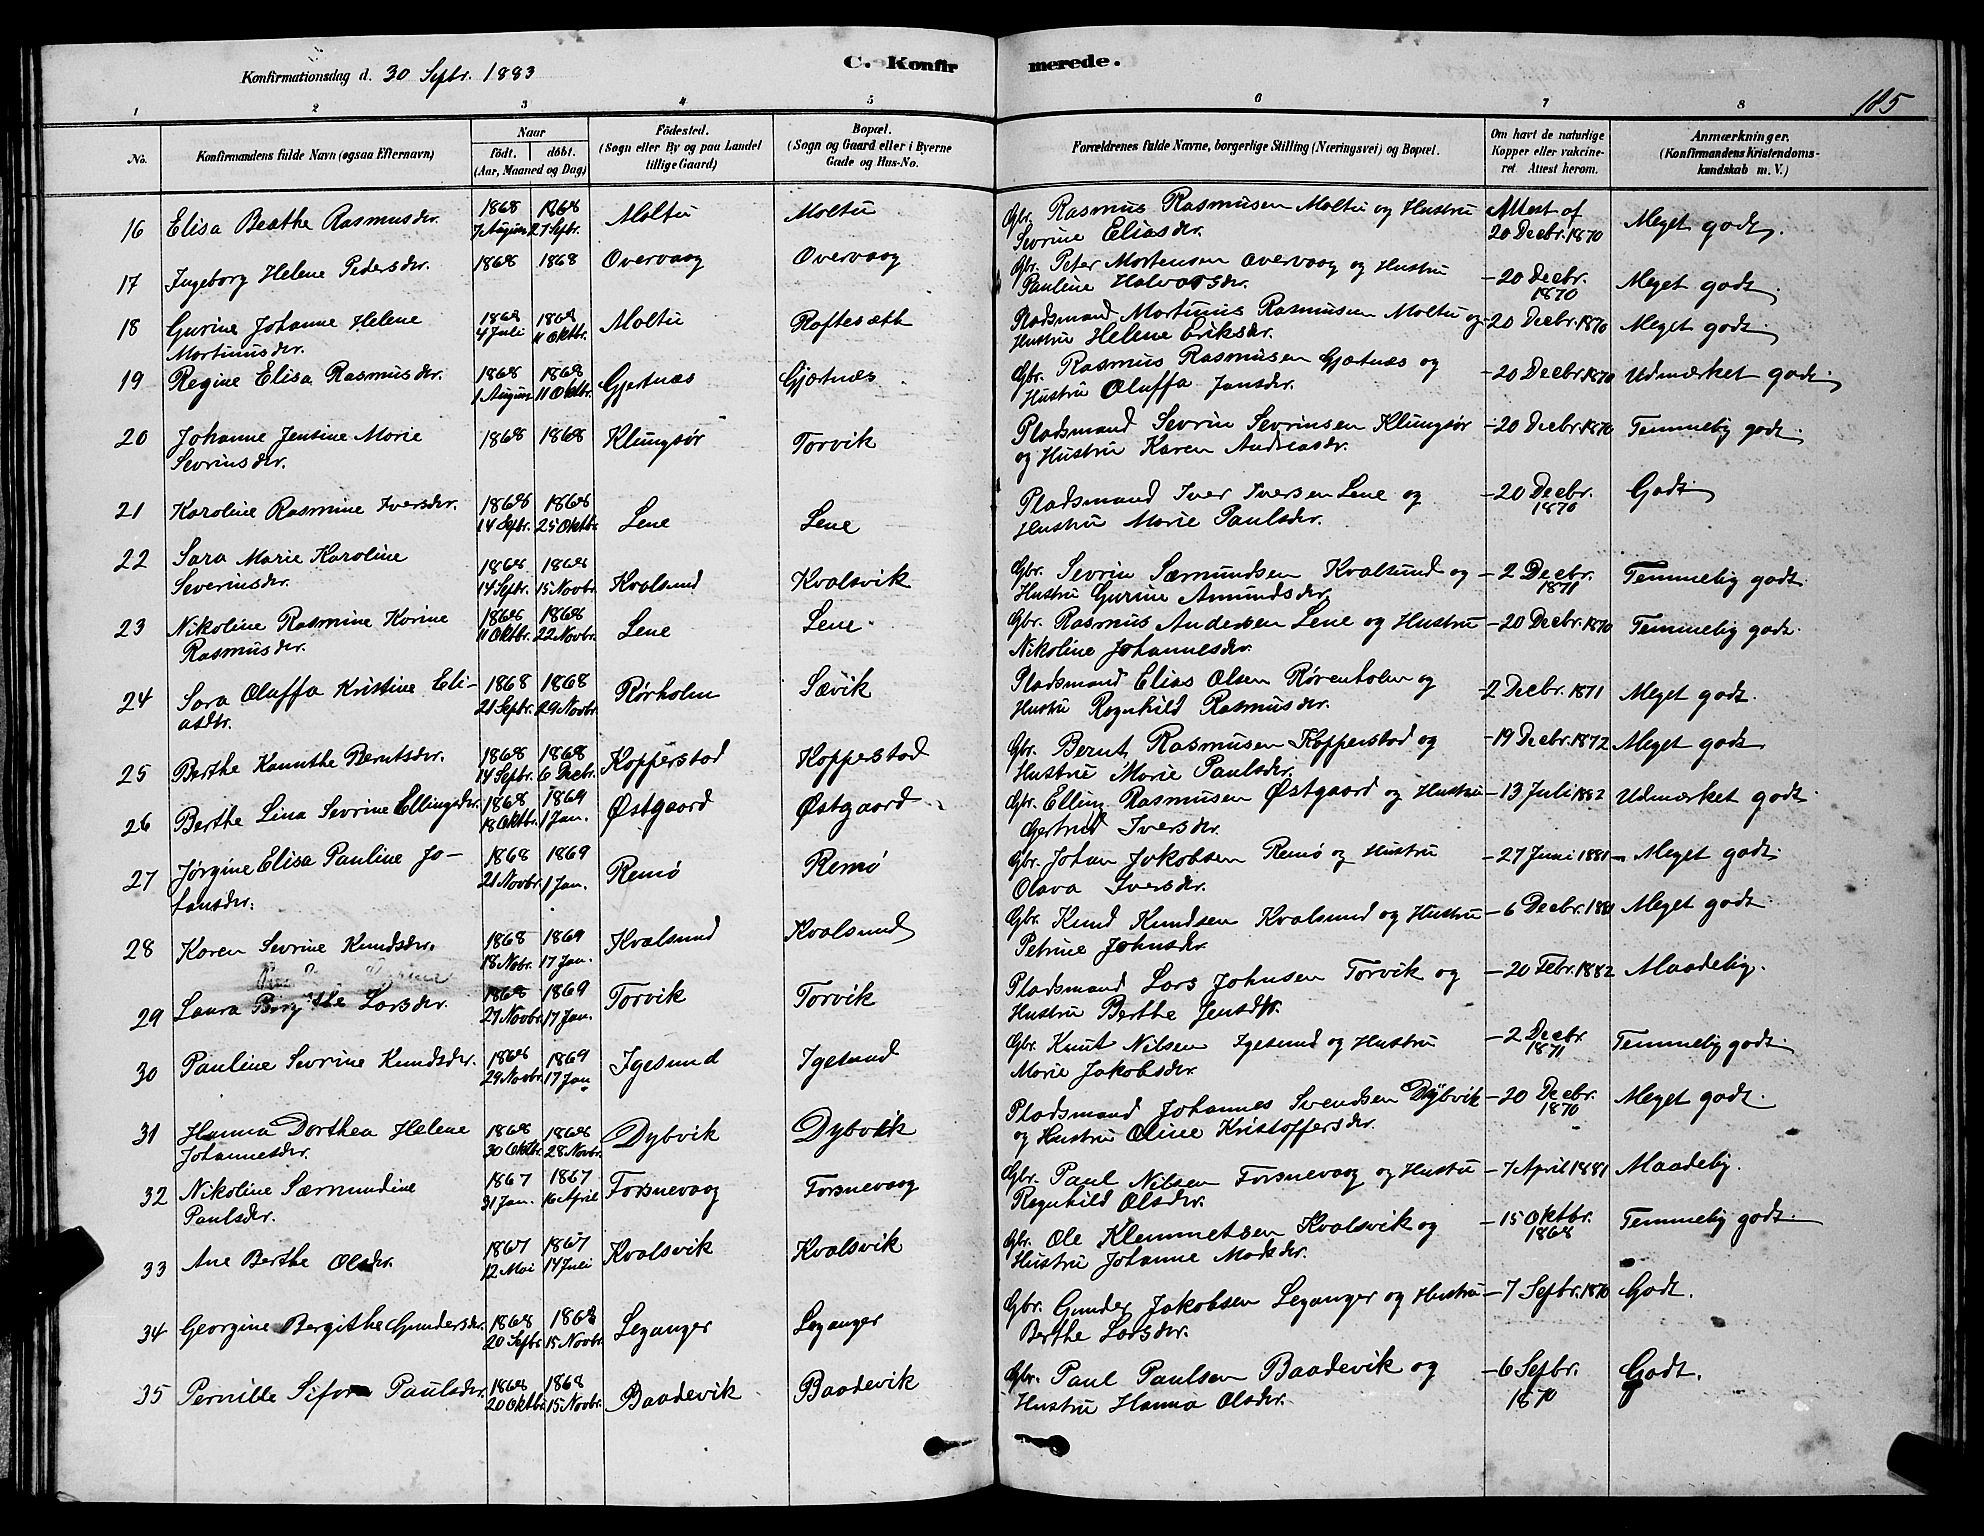 Konfirmationsdag d. 30 Septbr. 1883
C. Konfirmerede.
185
1 2 3 4 5 6 7 8
No.
Konfirmandens fulde Navn (ogsaa Efternavn)
Naar
födt. döbt.
(Aar, Maaned og Dag)
Födested.
(Sogn eller By og paa Landet
tillige Gaard)
Bopæl.
(Sogn og Gaard eller i Byerne
Gade og Hus-No.
Forældrenes fulde Navne, borgerlige Stilling (Næringsvei) og Bopæl.
Om havt de naturlige
Kopper eller vakcine-
ret Attest herom.
Anmærkninger.
(Konfirmandens Kristendoms-
kundskab m. V.)
16 Elisa Beathe Rasmusdr. 1868 7 August 1868 27 Septbr. Moltu Moltu Gbr. Rasmus Rasmusen Moltu og Hustru Attest af
Sevrine Eliasdr. 20 Decbr. 1870 Meget godt.
17 Ingeborg Helene Pedersdr. 1868 1868 Overvaag Overvaag Gbr. Peter Mortensen Overvaag og Hustru
Pauline Halvorsdr. - 20 Decbr. 1870 Meget godt.
18 Gurine Johanne Helene
Martinusdr. 1868 4 Juli 1868 11 Oktbr. Moltu Roftesæth Pladsmand Martinus Rasmusen Moltu og
Hustru Helene Eriksdr. - 20 Decbr. 1870 Meget godt.
19 Regine Elisa Rasmusdr. 1868 1 August 1868 11 Oktbr. Gjertnæs Gjertnæs Gbr. Rasmus Rasmusen Gjertnæs og
Hustru Oluffa Jansdr. - 20 Decbr. 1870 Udmærket godt.
20 Johanne Jensine Marie
Sevrinsdr. 1868 1868 Klungsör Torvik Pladsmand Sevrin Sevrinsen Klungsör
og Hustru Karen Andreasdr. - 20 Decbr. 1870 Temmelig godt.
21 Karoline Rasmine Iversdr. 1868 14 Septbr. 1868 25 Oktbr. Lene Lene Pladsmand Iver Iversen Lene og
Hustru Marie Paulsdr. - 20 Decbr. 1870 Godt
22 Sara Marie Karoline
Severinsdr. 1868 14 Septbr. 1868 15 Novbr. Kvalsund Kvalsvik Gbr. Sevrin Sæmundsen Kvalsund og
Hustru Gurine Amundsdr. - 2 Decbr. 1871 Temmelig godt.
23 Nikoline Rasmine Karine
Rasmusdr. 1868 11 Oktbr. 1868 22 Novbr. Lene Lene Gbr. Rasmus Andersen Lene og Hustru
Nikoline Johannesdr. - 20 Decbr. 1870 Temmelig godt.
24 Sara Oluffa Kristine Eli-
asdtr. 1868 21 Septbr. 1868 29 Novbr. Rörholm Sævik Pladsmand Elias Olsen Rörenholm og
Hustru Ragnhild Rasmusdr. - 2 Decbr. 1871 Meget godt.
25 Berthe Kanuthe Berntsdr. 1868 14 Septbr. 1868 6 Decbr. Kopperstad Koppestad Gbr. Bernt Rasmusen Kopperstad og
Hustru Marie Paulsdr. - 19 Decbr. 1872 Meget godt
26 Berthe Lina Sevrine Ellingsdr. 1868 18 Oktbr. 1869 1 Jan. Østgaard Østgaard Gbr. Elling Rasmusen Østgaard og Hustru
Gertrud Iversdr. - 13 Juli 1882 Udmærket godt.
27 Jørgine Elisa Pauline Jo-
hansdr. 1868 21 Novbr. 1869 1 Jan. Remö Remö Gbr. Johan Jakobsen Remö og Hustru
Olava Iversdr. - 27 Juni 1881 - Meget godt.
28 Karen Sevrine Knudsdr. 1868 18 Nobr. 1869 17 Jan. Kvalsund Kvalsund Gbr. Knud Knudsen Kvalsund og Hustru
Petrine Johnsdr. - 6 Decbr. 1881 Meget godt.
29 Laura Birgithe Larsdr. 1868 27 Novbr. 1869 17 Jan. Torvik Torvik Pladsmand Lars Johnsen Torvik og
Hustru Berthe Jensdtr. - 20 Febr. 1882 Maadelig.
30 Pauline Sevrine Knudsdr. 1868 29 Novbr. 1869 17 Jan Igesund Igesund Gbr. Knut Nilsen Igesund og Hustru
Marie Jakobsdr. - 2 Decbr. 1871 Temmelig godt.
31 Hanna Dorthea Helene
Johannesdr. 1868 30 Oktbr. 1868 28 Novbr. Dybvik Dybvik Pladsmand Johannes Svendsen Dybvik
og Hustru Oline Kristoffersdr. - 20 Decbr. 1870 Meget godt.
32 Nikoline Sæmundine
Paulsdr. 1867 31 Jan. 1867 16 April Forsnevaag Forsnevaag Gbr. Paul Nilsen Forsnevaag og Hustru
Ragnhild Olsdr. - 7 April 1881 Maadelig.
33 Ane Berthe Olsdr. 1867 12 Mai 1867 14 Juli Kvalsvik Kvalsvik Gbr. Ole Klemmetsen Kvalsvik og
Hustru Johanne Madsdr. - 15 Oktbr. 1868 Temmelig godt.
34 Georgine Bergithe Gundersdr. 1868 20 Septbr. 1868 15 Novbr. Leganger Leganger Gbr. Gunder Jakobsen Leganger og Hustru
Berthe Larsdr. - 7 Septbr. 1870 Godt.
35 Pernille Sifora Paulsdr. 1868 20 Oktbr. 1868 15 Novbr. Baadevik Baadevik Gbr. Paul Paulsen Baadevik og
Hustru Hanna Olsdr. - 6 Septbr. 1870 Godt.